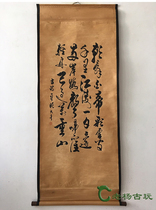 朝辞白帝彩云间
千里江陵一日还
两岸猿声啼不住
轻舟已过万重山
杨古玩